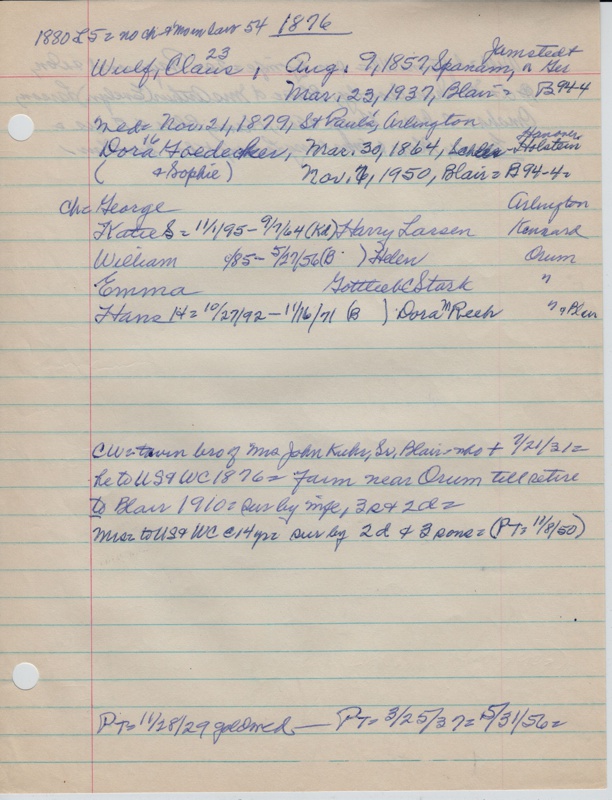 1880 L5 = no ch & Mom Law 54 1876
23 Jamstedt
Wulf, Claus, Aug. 9, 1857, Spanam, n Ger
Mar. 23, 1937, Blair = B94-4
Med = Nov. 21, 1879, St Paul's, Arlington
14 Hanover
Dora Goedecker, Mar. 30, 1864, -Holstein
( & Sophie) Nov. 7, 1950, Blair = B94-4 =
Ch = George Arlington
Katie S = 11/1/95 - 9/7/64 (Kd) Harry Larsen Kennard
William /85 - 5/27/56 (B ) Helen Orum
Emma Gottlieb C Stark "
Hans H = 10/27/92 - 11/16/71 (B ) Dora M Reeh " & Blair
CW = twin bro of Mrs John Kuhr, Sr, Blair - who + 7/21/31 =
he to US & WC 1876 = Farm near Orum till retire
to Blair 1910 = sur by wife, 3 s & 2 d =
Mrs = to US & WC @ 14 yrs = sur by 2 d & 3 sons = (PT = 11/8/50)
PT = 11/28/29 gold wed — PT = 3/25/37 = 5/31/56 =